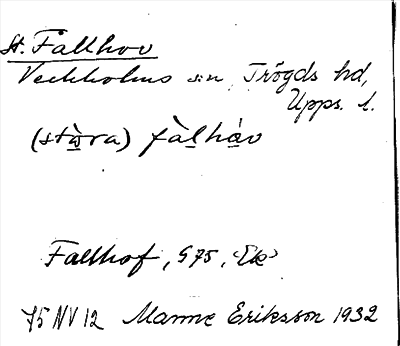 St. Fallhov
Veckholms sn, Trögds hd,
Upps. l.
(stὼra) fàlháv
Fallhof, G75, Ek
75 NV 12 Manne Eriksson 1932